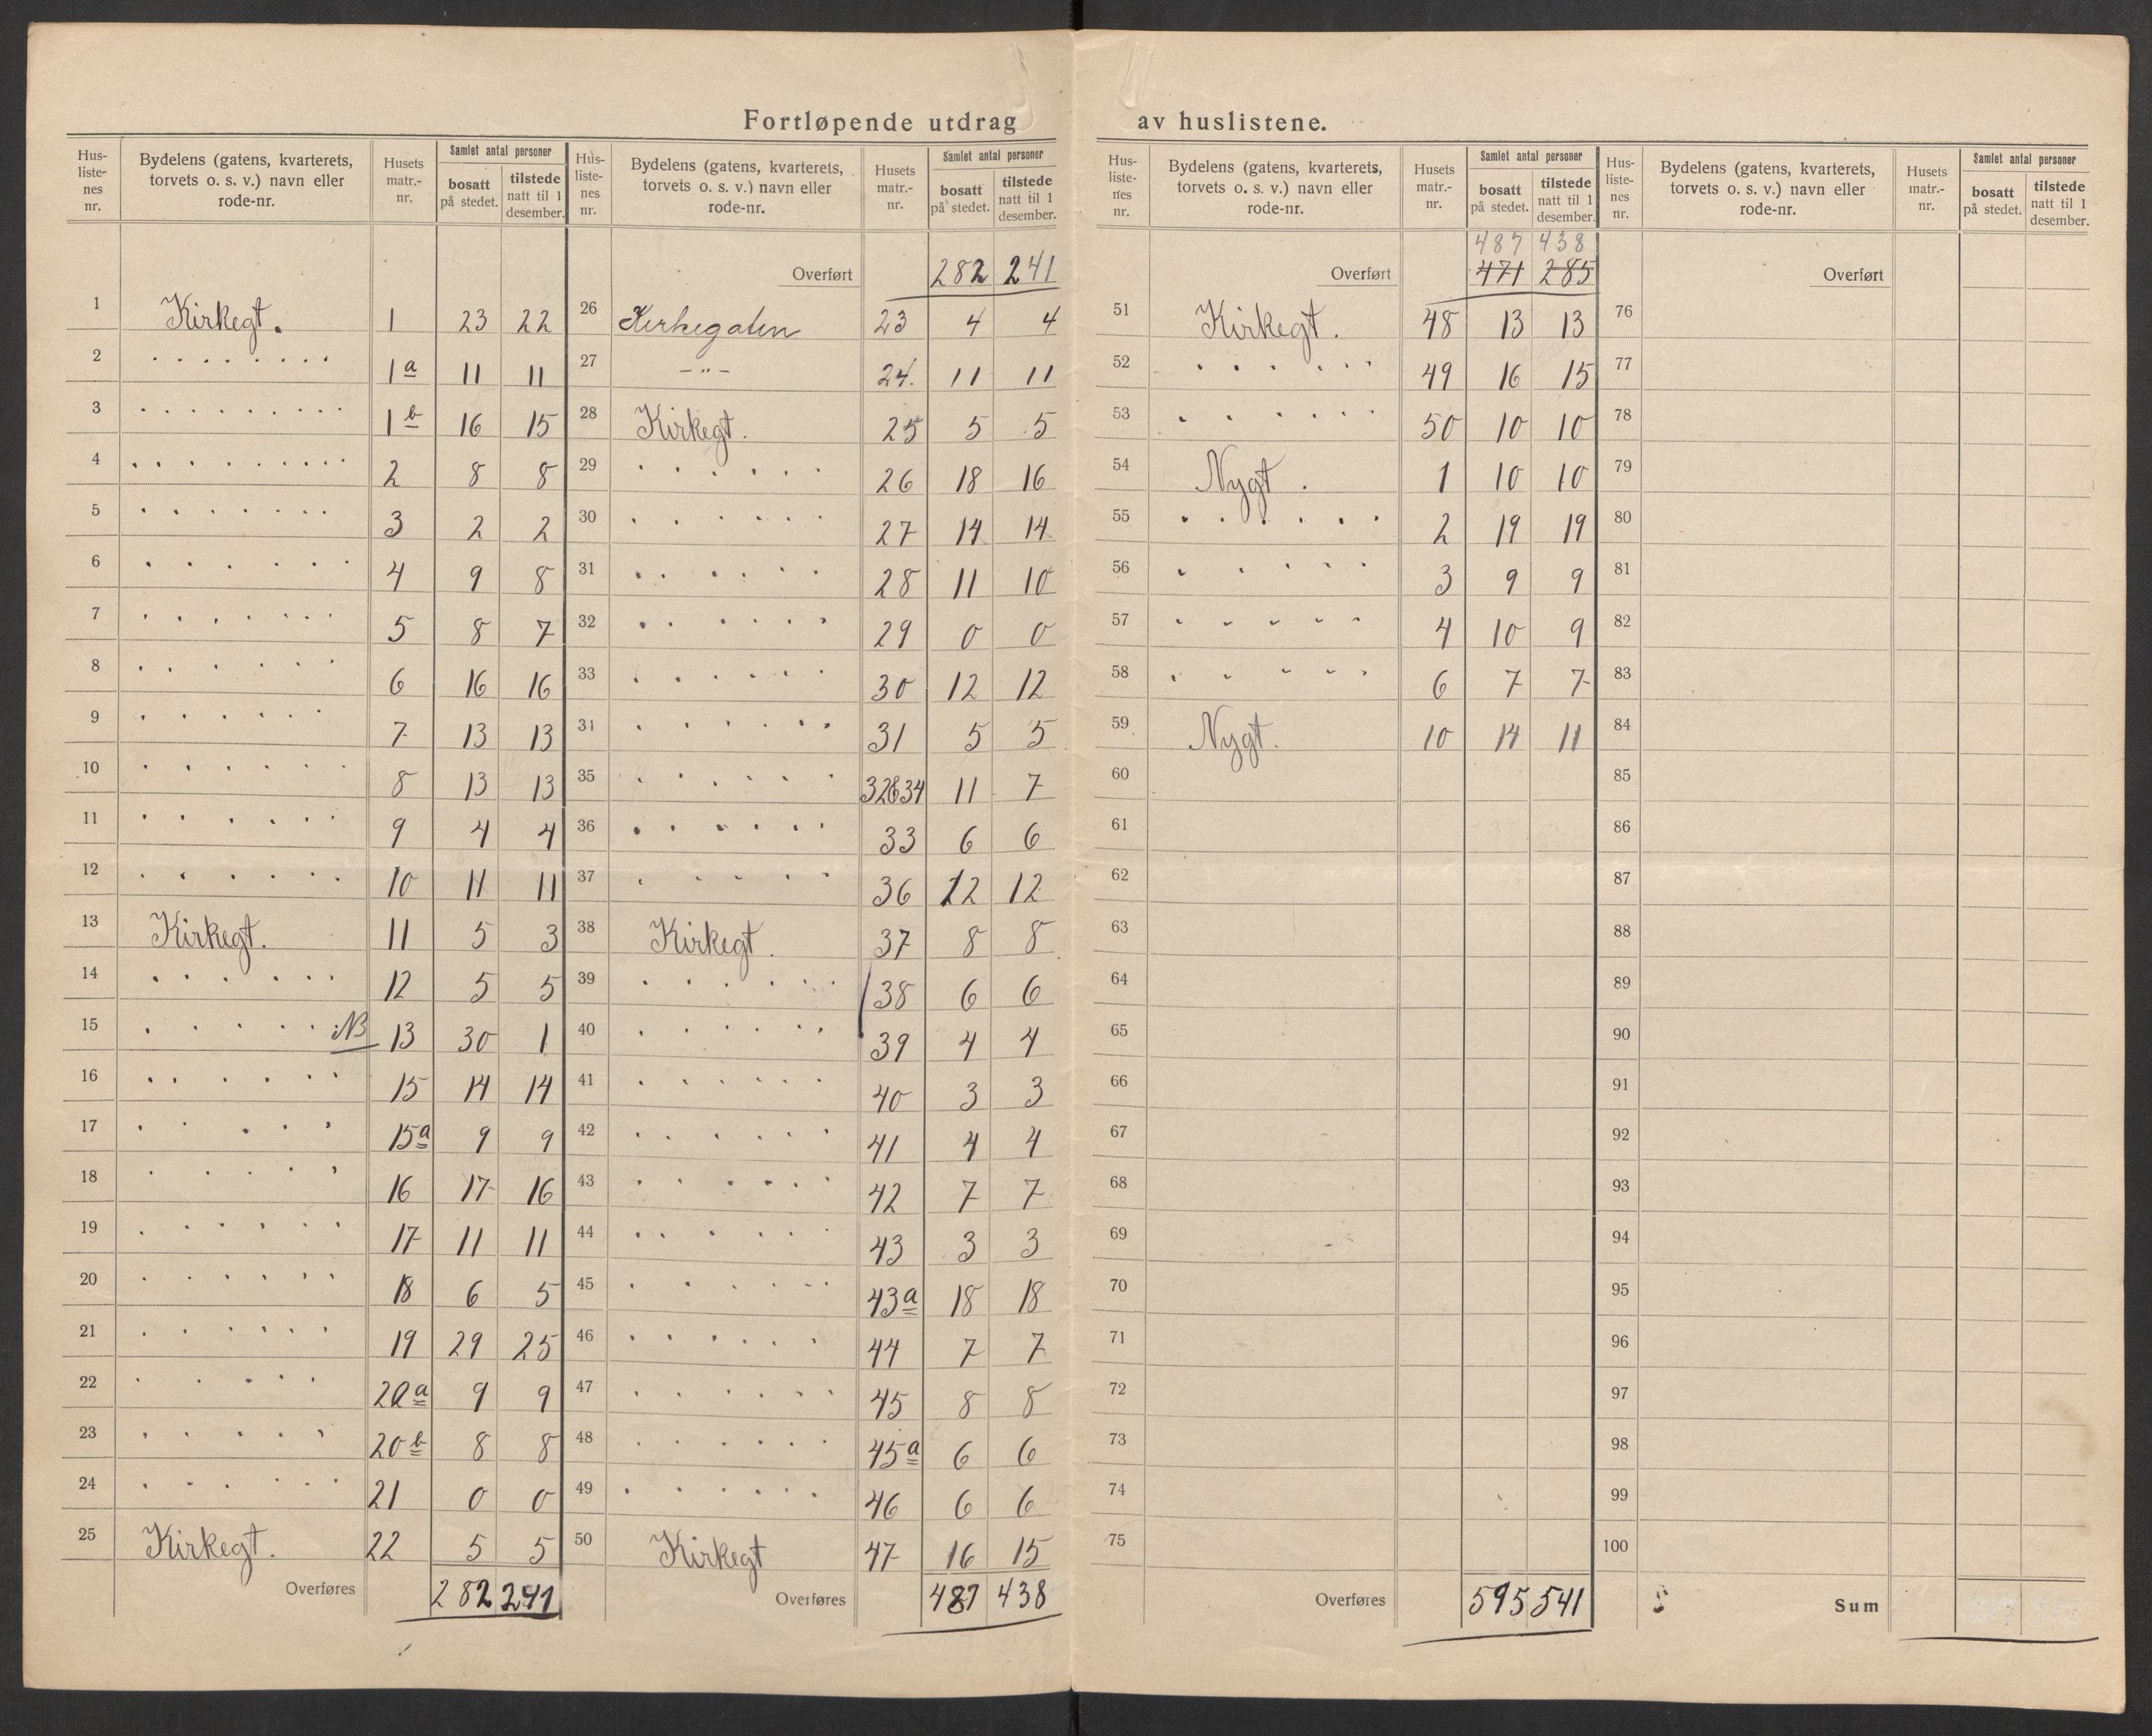 Fortløpende utdrag av huslistene.
Hus-liste-nes nr. | Bydelens (gatens, kvarterets, torvets o. s. v.) navn eller rode-nr. | Husets matr.-nr. | Samlet antal personer bosatt på stedet. | tilstede natt til 1 desember.
1 Kirkegt. 1 23 22
2 " 1a 11 11
3 " 1b 16 15
4 " 2 8 8
5 " 3 2 2
6 " 4 9 8
7 " 5 8 7
8 " 6 16 16
9 " 7 13 13
10 " 8 13 13
11 " 9 4 4
12 " 10 11 11
13 Kirkegt. 11 5 3
14 " 12 5 5
15 " NB 13 30 1
16 " 15 14 14
17 " 15a 9 9
18 " 16 17 16
19 " 17 11 11
20 " 18 6 5
21 " 19 29 25
22 " 20a 9 9
23 " 20b 8 8
24 " 21 0 0
25 Kirkegt. 22 5 5
Overføres 282 241
Hus-liste-nes nr. | Bydelens (gatens, kvarterets, torvets o. s. v.) navn eller rode-nr. | Husets matr.-nr. | Samlet antal personer bosatt på stedet. | tilstede natt til 1 desember.
Overført 282 241
26 Kirkegaten 23 4 4
27 -"- 24. 11 11
28 Kirkegt. 25 5 5
29 " 26 18 16
30 " 27 14 14
31 " 28 11 10
32 " 29 0 0
33 " 30 12 12
34 " 31 5 5
35 " 32&34 11 7
36 " 33 6 6
37 " 36 12 12
38 Kirkegt. 37 8 8
39 " 38 6 6
40 " 39 4 4
41 " 40 3 3
42 " 41 4 4
43 " 42 7 7
44 " 43 3 3
45 " 43a 18 18
46 " 44 7 7
47 " 45 8 8
48 " 45a 6 6
49 " 46 6 6
50 Kirkegt 47 16 15
Overføres 487 438
Hus-liste-nes nr. | Bydelens (gatens, kvarterets, torvets o. s. v.) navn eller rode-nr. | Husets matr.-nr. | Samlet antal personer bosatt på stedet. | tilstede natt til 1 desember.
487 438
Overført 471 285
51 Kirkegt. 48 13 13
52 " 49 16 15
53 " 50 10 10
54 Nygt. 1 10 10
55 " 2 19 19
56 " 3 9 9
57 " 4 10 9
58 " 6 7 7
59 Nygt. 10 14 11
60
61
62
63
64
65
66
67
68
69
70
71
72
73
74
75
Overføres 595 541
Hus-liste-nes nr. | Bydelens (gatens, kvarterets, torvets o. s. v.) navn eller rode-nr. | Husets matr.-nr. | Samlet antal personer bosatt på stedet. | tilstede natt til 1 desember.
Overført
76
77
78
79
80
81
82
83
84
85
86
87
88
89
90
91
92
93
94
95
96
97
98
99
100
Sum